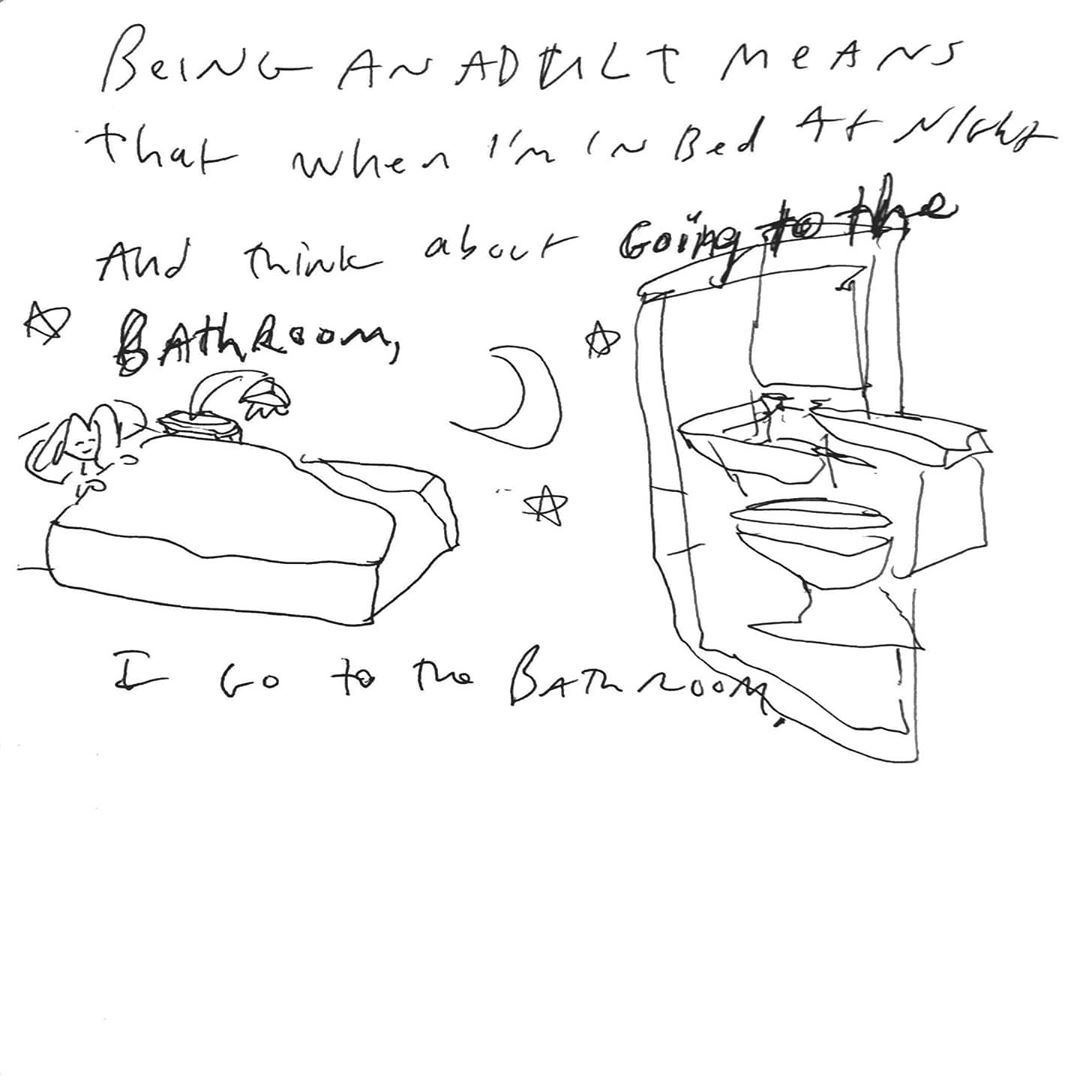 BeING AN ADULT MeANS
that when I'm IN Bed At NIGht
And think about GoiNg to the
BAthRoom,
I Go to the BAThROOM.